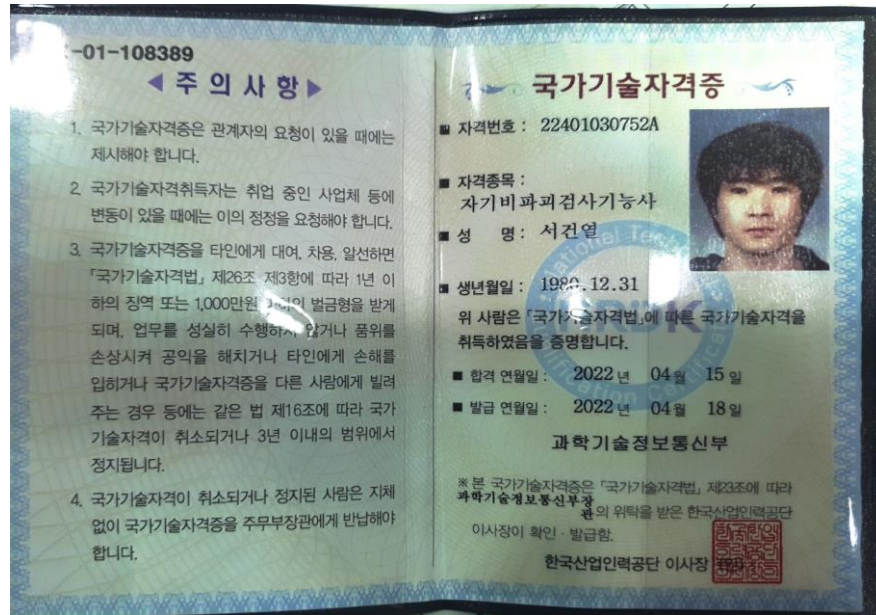 -01-108389
◀ 주의사항 ▶
1. 국가기술자격증은 관계자의 요청이 있을 때에는
제시해야 합니다.
2. 국가기술자격취득자는 취업 중인 사업체 등에
변동이 있을 때에는 이의 정정을 요청해야 합니다.
3. 국가기술자격증을 타인에게 대여, 차용, 알선하면
「국가기술자격법」 제26조 제3항에 따라 1년 이
하의 징역 또는 1,000만원 이하의 벌금형을 받게
되며, 업무를 성실히 수행하지 않거나 품위를
손상시켜 공익을 해치거나 타인에게 손해를
입히거나 국가기술자격증을 다른 사람에게 빌려
주는 경우 등에는 같은 법 제16조에 따라 국가
기술자격이 취소되거나 3년 이내의 범위에서
정지됩니다.
4. 국가기술자격이 취소되거나 정지된 사람은 지체
없이 국가기술자격증을 주무부장관에게 반납해야
합니다.
국가기술자격증
■ 자격번호 : 22401030752A
■ 자격종목 :
자기비파괴검사기능사
■ 성 명 : 서건열
■ 생년월일 : 1989.12.31
위 사람은 「국가기술자격법」에 따른 국가기술자격을
취득하였음을 증명합니다.
■ 합격 연월일 : 2022 년 04 월 15 일
■ 발급 연월일 : 2022 년 04 월 18 일
과학기술정보통신부
※ 본 국가기술자격증은 「국가기술자격법」 제23조에 따라
과학기술정보통신부장
관의 위탁을 받은 한국산업인력공단
이사장이 확인 · 발급함.
한국산업인력공단 이사장